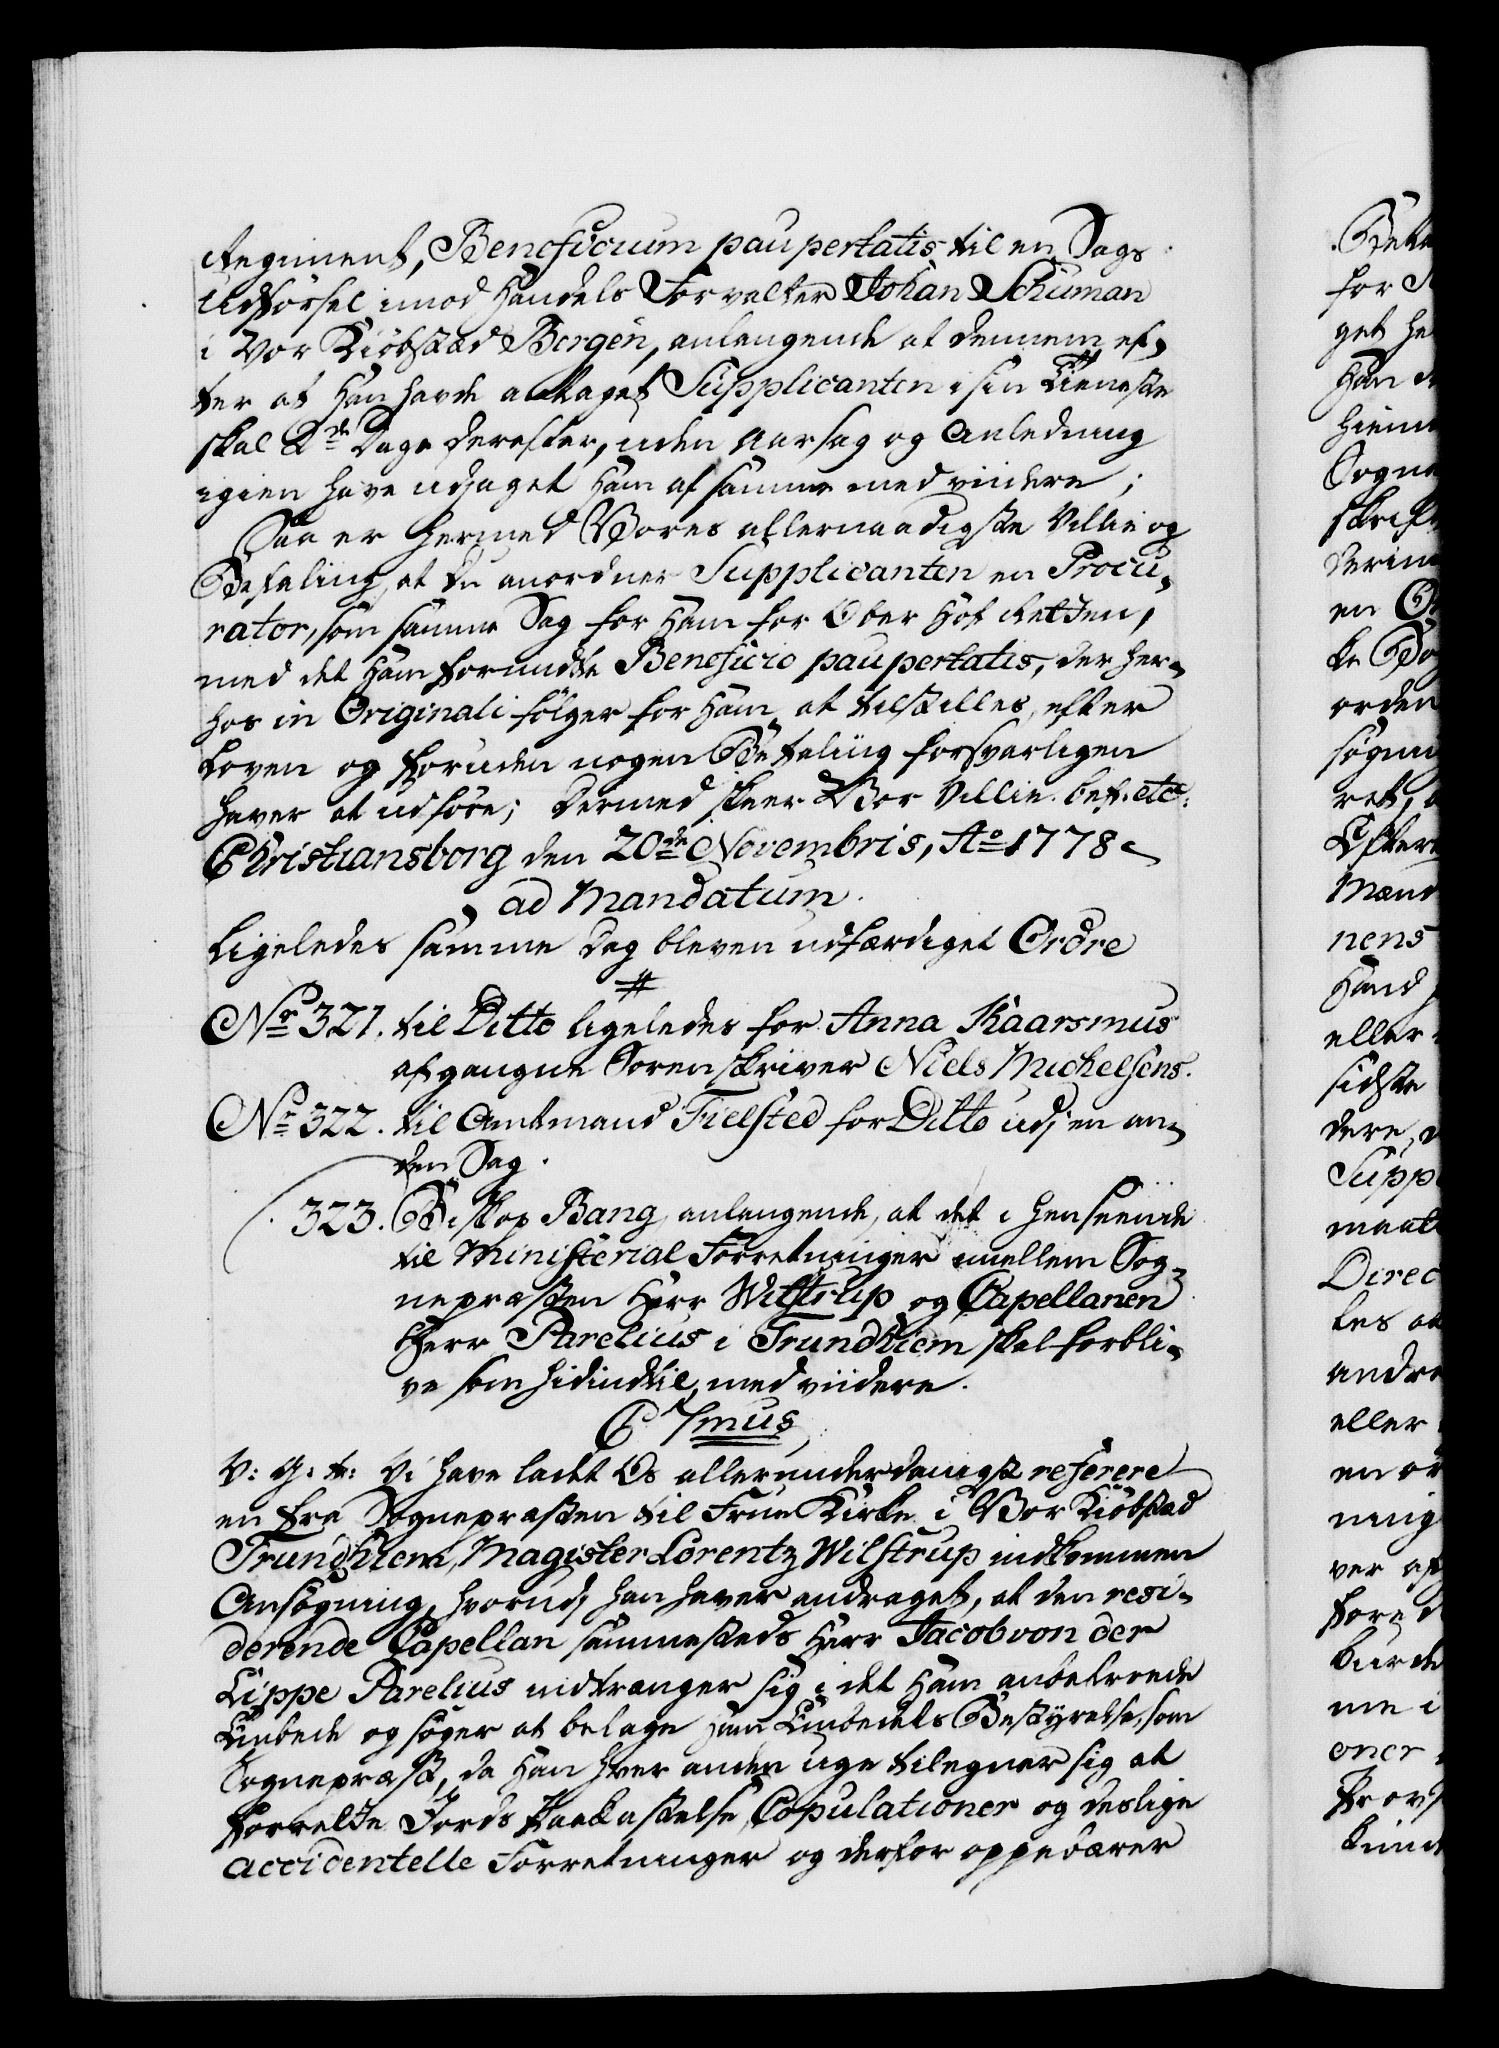 Regiment, Beneficium paupertatis til en Sags
Udførsel imod Handels Forvalter Johan Schuman
i Vor Kiöbstad Bergen, anlangende at denne ef-
ter at Han havde antaget Supplicanten i sin Tieneste
skal 2de Dage derefter, uden Aarsag og Anledning
igien have udjaget Ham af samme med viidere;
Saa er hermed Vores allernaadigste Villie og
Befaling, at du anordner Supplicanten en Procu-
rator, som samme Sag for Ham for Ober Hof Retten,
med det Ham forundte Beneficio paupertatis, der her-
hos in Originali følger for Ham at tilstilles, efter
Loven og foruden nogen Betaling forsvarligen
haver at udføre; Dermed skeer Vor Villie. bef. etc:
Christiansborg den 20de Novembris, Ao 1778
ad Mandatum.
Ligeledes samme Dag bleven udfærdiget Ordre
#
No 321. til Ditto ligeledes for Anna Kaarsmus
afgangne Sorenskriver Niels Michelsens.
No 322. til Amtmand Fielsted for Ditto udj en an-
den Sag.
323. Biskop Bang, anlangende, at det i Henseende
til Ministerial Forretninger imellem Sog-
nepræsten Herr Wilstrup og Capellanen
Herr Parelius i Trundhiem skal forbli-
ve som hidindtil, med viidere.
C 7mus
V: G: T: Vi have ladet Os allerunderdanigst referere
en fra Sognepræsten til Frue Kirke i Vor Kiöbstad
Trundhiem, Magister Lorentz Wilstrup indkommen
Ansøgning, hvorudj han haver andraget, at den resi-
derende Capellan sammesteds Herr Jacob von der
Lippe Parelius indtrænger sig i det Ham anbetroede
Embede og søger at betage Ham Embedets Bestyrelse som
Sognepræst, da Han hver anden Uge tilegner sig at
forrette Jords Paakastelse, Copulationer og deslige
accidentelle Forretninger og derfor oppebærer